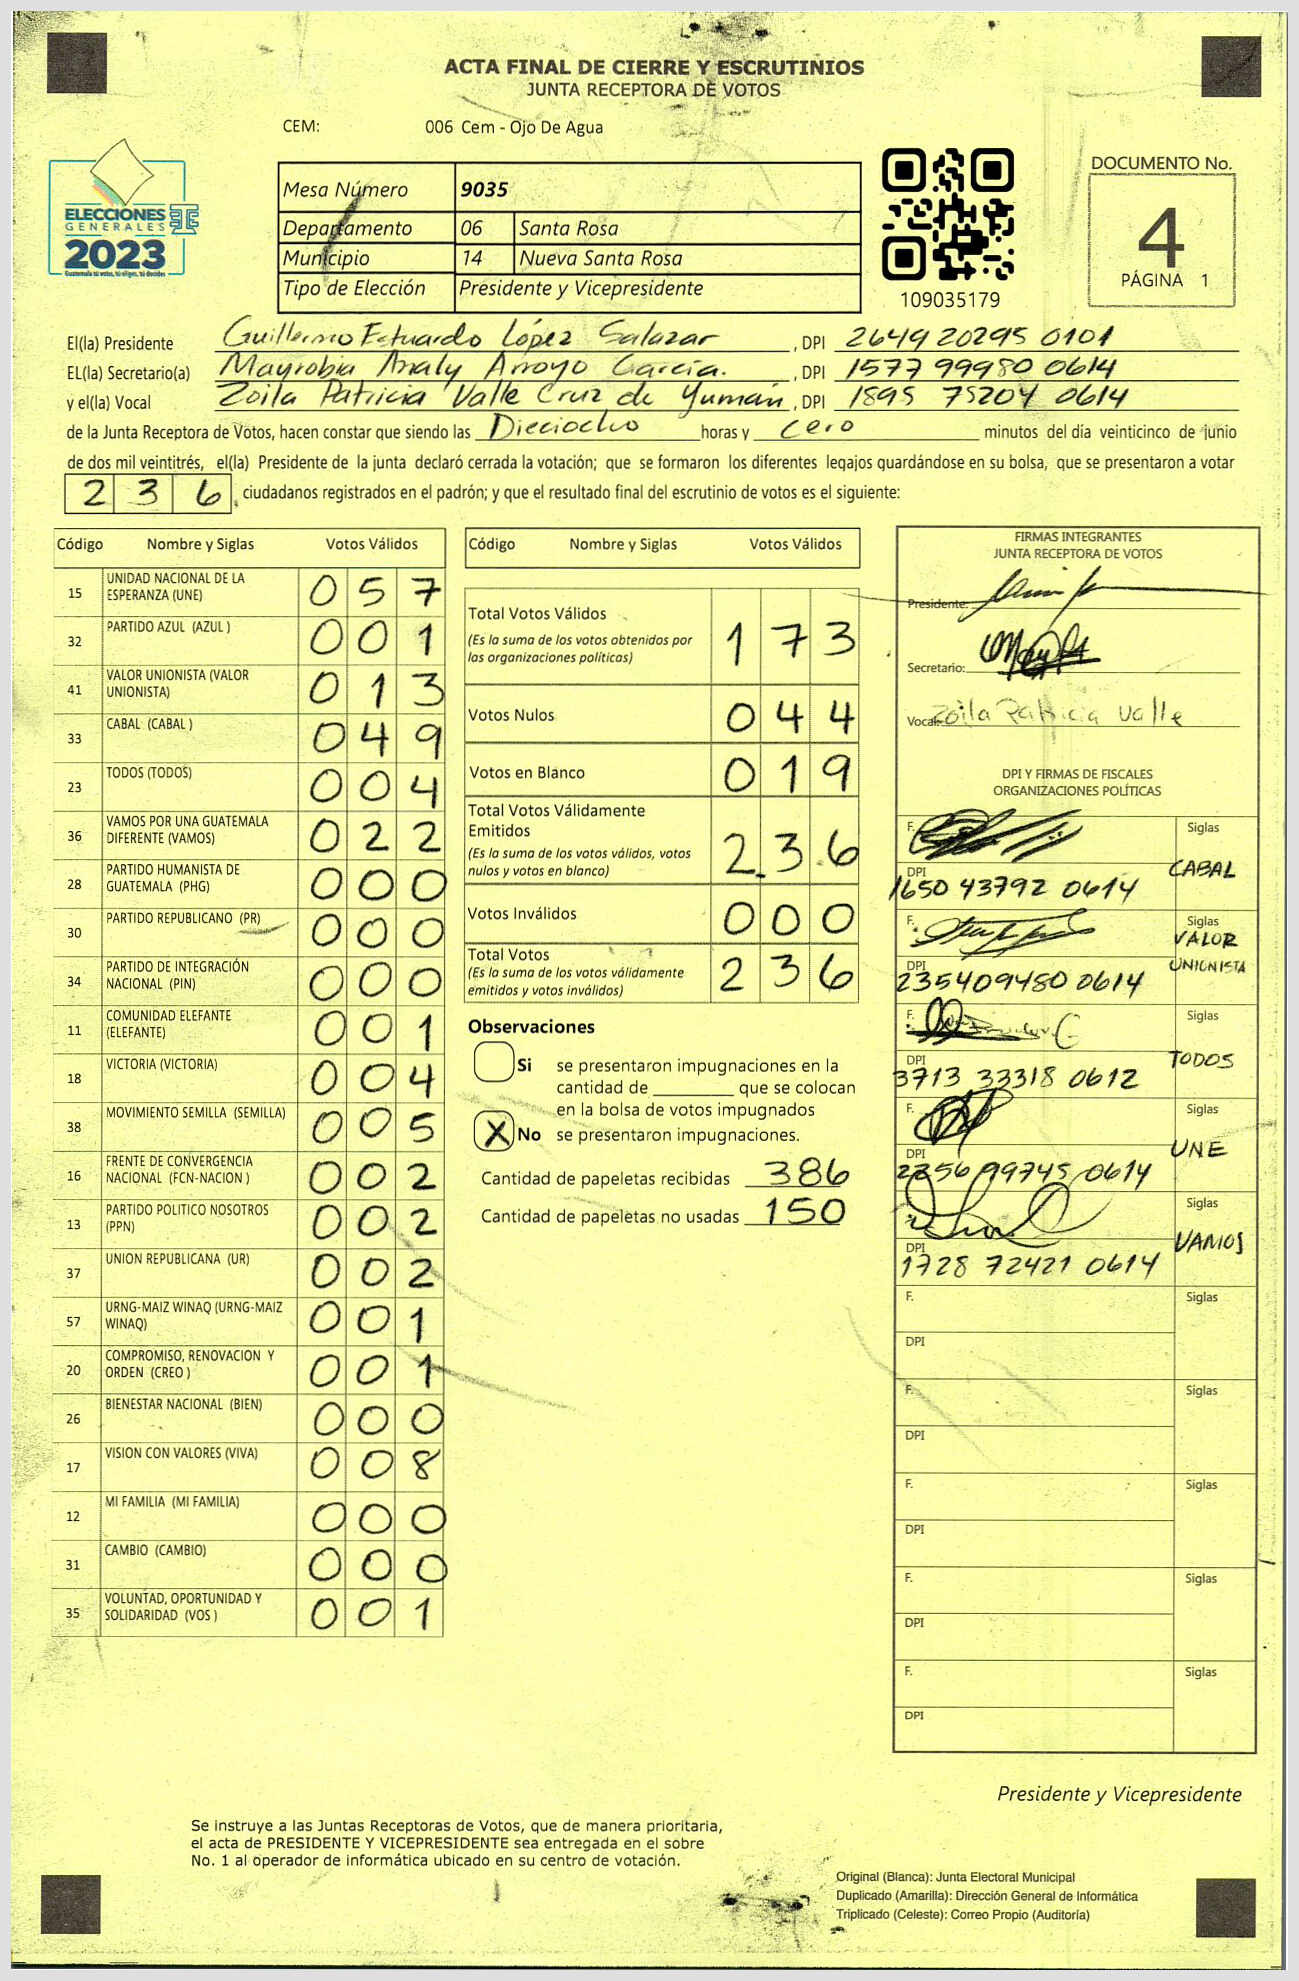 ACTA FINAL DE CIERRE Y ESCRUTINIOS
JUNTA RECEPTORA DE VOTOS
CEM: 006 Cem - Ojo De Agua
ELECCIONES
GENERALES
2023
Guatemala tú votas, tú eliges, tú decides
Mesa Número 9035
Departamento 06 Santa Rosa
Municipio 14 Nueva Santa Rosa
Tipo de Elección Presidente y Vicepresidente
109035179
DOCUMENTO No.
4
PÁGINA 1
El(la) Presidente Guillermo Estuardo López Salazar, DPI 2649 20295 0101
EL(la) Secretario(a) Mayrobia Analy Arroyo García., DPI 1577 99980 0614
y el(la) Vocal Zoila Patricia Valle Cruz de Yumán, DPI 1895 75204 0614
de la Junta Receptora de Votos, hacen constar que siendo las Dieciocho horas y cero minutos del día veinticinco de junio
de dos mil veintitrés, el(la) Presidente de la junta declaró cerrada la votación; que se formaron los diferentes legajos guardándose en su bolsa, que se presentaron a votar
2 3 6, ciudadanos registrados en el padrón; y que el resultado final del escrutinio de votos es el siguiente:
Código Nombre y Siglas Votos Válidos
15 UNIDAD NACIONAL DE LA ESPERANZA (UNE) 0 5 7
32 PARTIDO AZUL (AZUL ) 0 0 1
41 VALOR UNIONISTA (VALOR UNIONISTA) 0 1 3
33 CABAL (CABAL ) 0 4 9
23 TODOS (TODOS) 0 0 4
36 VAMOS POR UNA GUATEMALA DIFERENTE (VAMOS) 0 2 2
28 PARTIDO HUMANISTA DE GUATEMALA (PHG) 0 0 0
30 PARTIDO REPUBLICANO (PR) 0 0 0
34 PARTIDO DE INTEGRACIÓN NACIONAL (PIN) 0 0 0
11 COMUNIDAD ELEFANTE (ELEFANTE) 0 0 1
18 VICTORIA (VICTORIA) 0 0 4
38 MOVIMIENTO SEMILLA (SEMILLA) 0 0 5
16 FRENTE DE CONVERGENCIA NACIONAL (FCN-NACION ) 0 0 2
13 PARTIDO POLITICO NOSOTROS (PPN) 0 0 2
37 UNION REPUBLICANA (UR) 0 0 2
57 URNG-MAIZ WINAQ (URNG-MAIZ WINAQ) 0 0 1
20 COMPROMISO, RENOVACION Y ORDEN (CREO ) 0 0 1
26 BIENESTAR NACIONAL (BIEN) 0 0 0
17 VISION CON VALORES (VIVA) 0 0 8
12 MI FAMILIA (MI FAMILIA) 0 0 0
31 CAMBIO (CAMBIO) 0 0 0
35 VOLUNTAD, OPORTUNIDAD Y SOLIDARIDAD (VOS ) 0 0 1
Código Nombre y Siglas Votos Válidos
Total Votos Válidos
(Es la suma de los votos obtenidos por
las organizaciones políticas) 1 7 3
Votos Nulos 0 4 4
Votos en Blanco 0 1 9
Total Votos Válidamente
Emitidos
(Es la suma de los votos válidos, votos
nulos y votos en blanco) 2 3 6
Votos Inválidos 0 0 0
Total Votos
(Es la suma de los votos válidamente
emitidos y votos inválidos) 2 3 6
Observaciones
Si se presentaron impugnaciones en la
cantidad de ________ que se colocan
en la bolsa de votos impugnados
X No se presentaron impugnaciones.
Cantidad de papeletas recibidas 386
Cantidad de papeletas no usadas 150
FIRMAS INTEGRANTES
JUNTA RECEPTORA DE VOTOS
Presidente:
Secretario:
Vocal: Zoila Patricia Valle
DPI Y FIRMAS DE FISCALES
ORGANIZACIONES POLÍTICAS
F. Siglas
CABAL
DPI
1650 43792 0614
F. Siglas
VALOR
UNIONISTA
DPI
235409480 0614
F. Siglas
TODOS
DPI
3713 33318 0612
F. Siglas
UNE
DPI
2256 99745 0614
Siglas
VAMOS
DPI
1728 72421 0614
F. Siglas
DPI
F. Siglas
DPI
F. Siglas
DPI
F. Siglas
DPI
F. Siglas
DPI
Presidente y Vicepresidente
Se instruye a las Juntas Receptoras de Votos, que de manera prioritaria,
el acta de PRESIDENTE Y VICEPRESIDENTE sea entregada en el sobre
No. 1 al operador de informática ubicado en su centro de votación.
Original (Blanca): Junta Electoral Municipal
Duplicado (Amarilla): Dirección General de Informática
Triplicado (Celeste): Correo Propio (Auditoría)